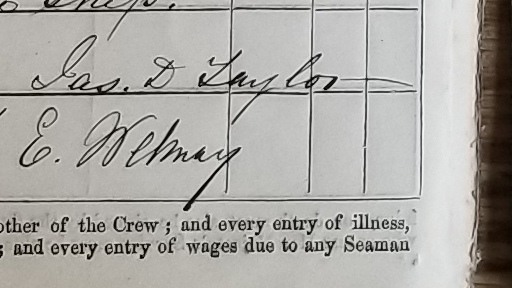 ship.
Jas. D Taylor
E.
other of the Crew; and every entry of illness,
; and every entry of wages due to any Seaman